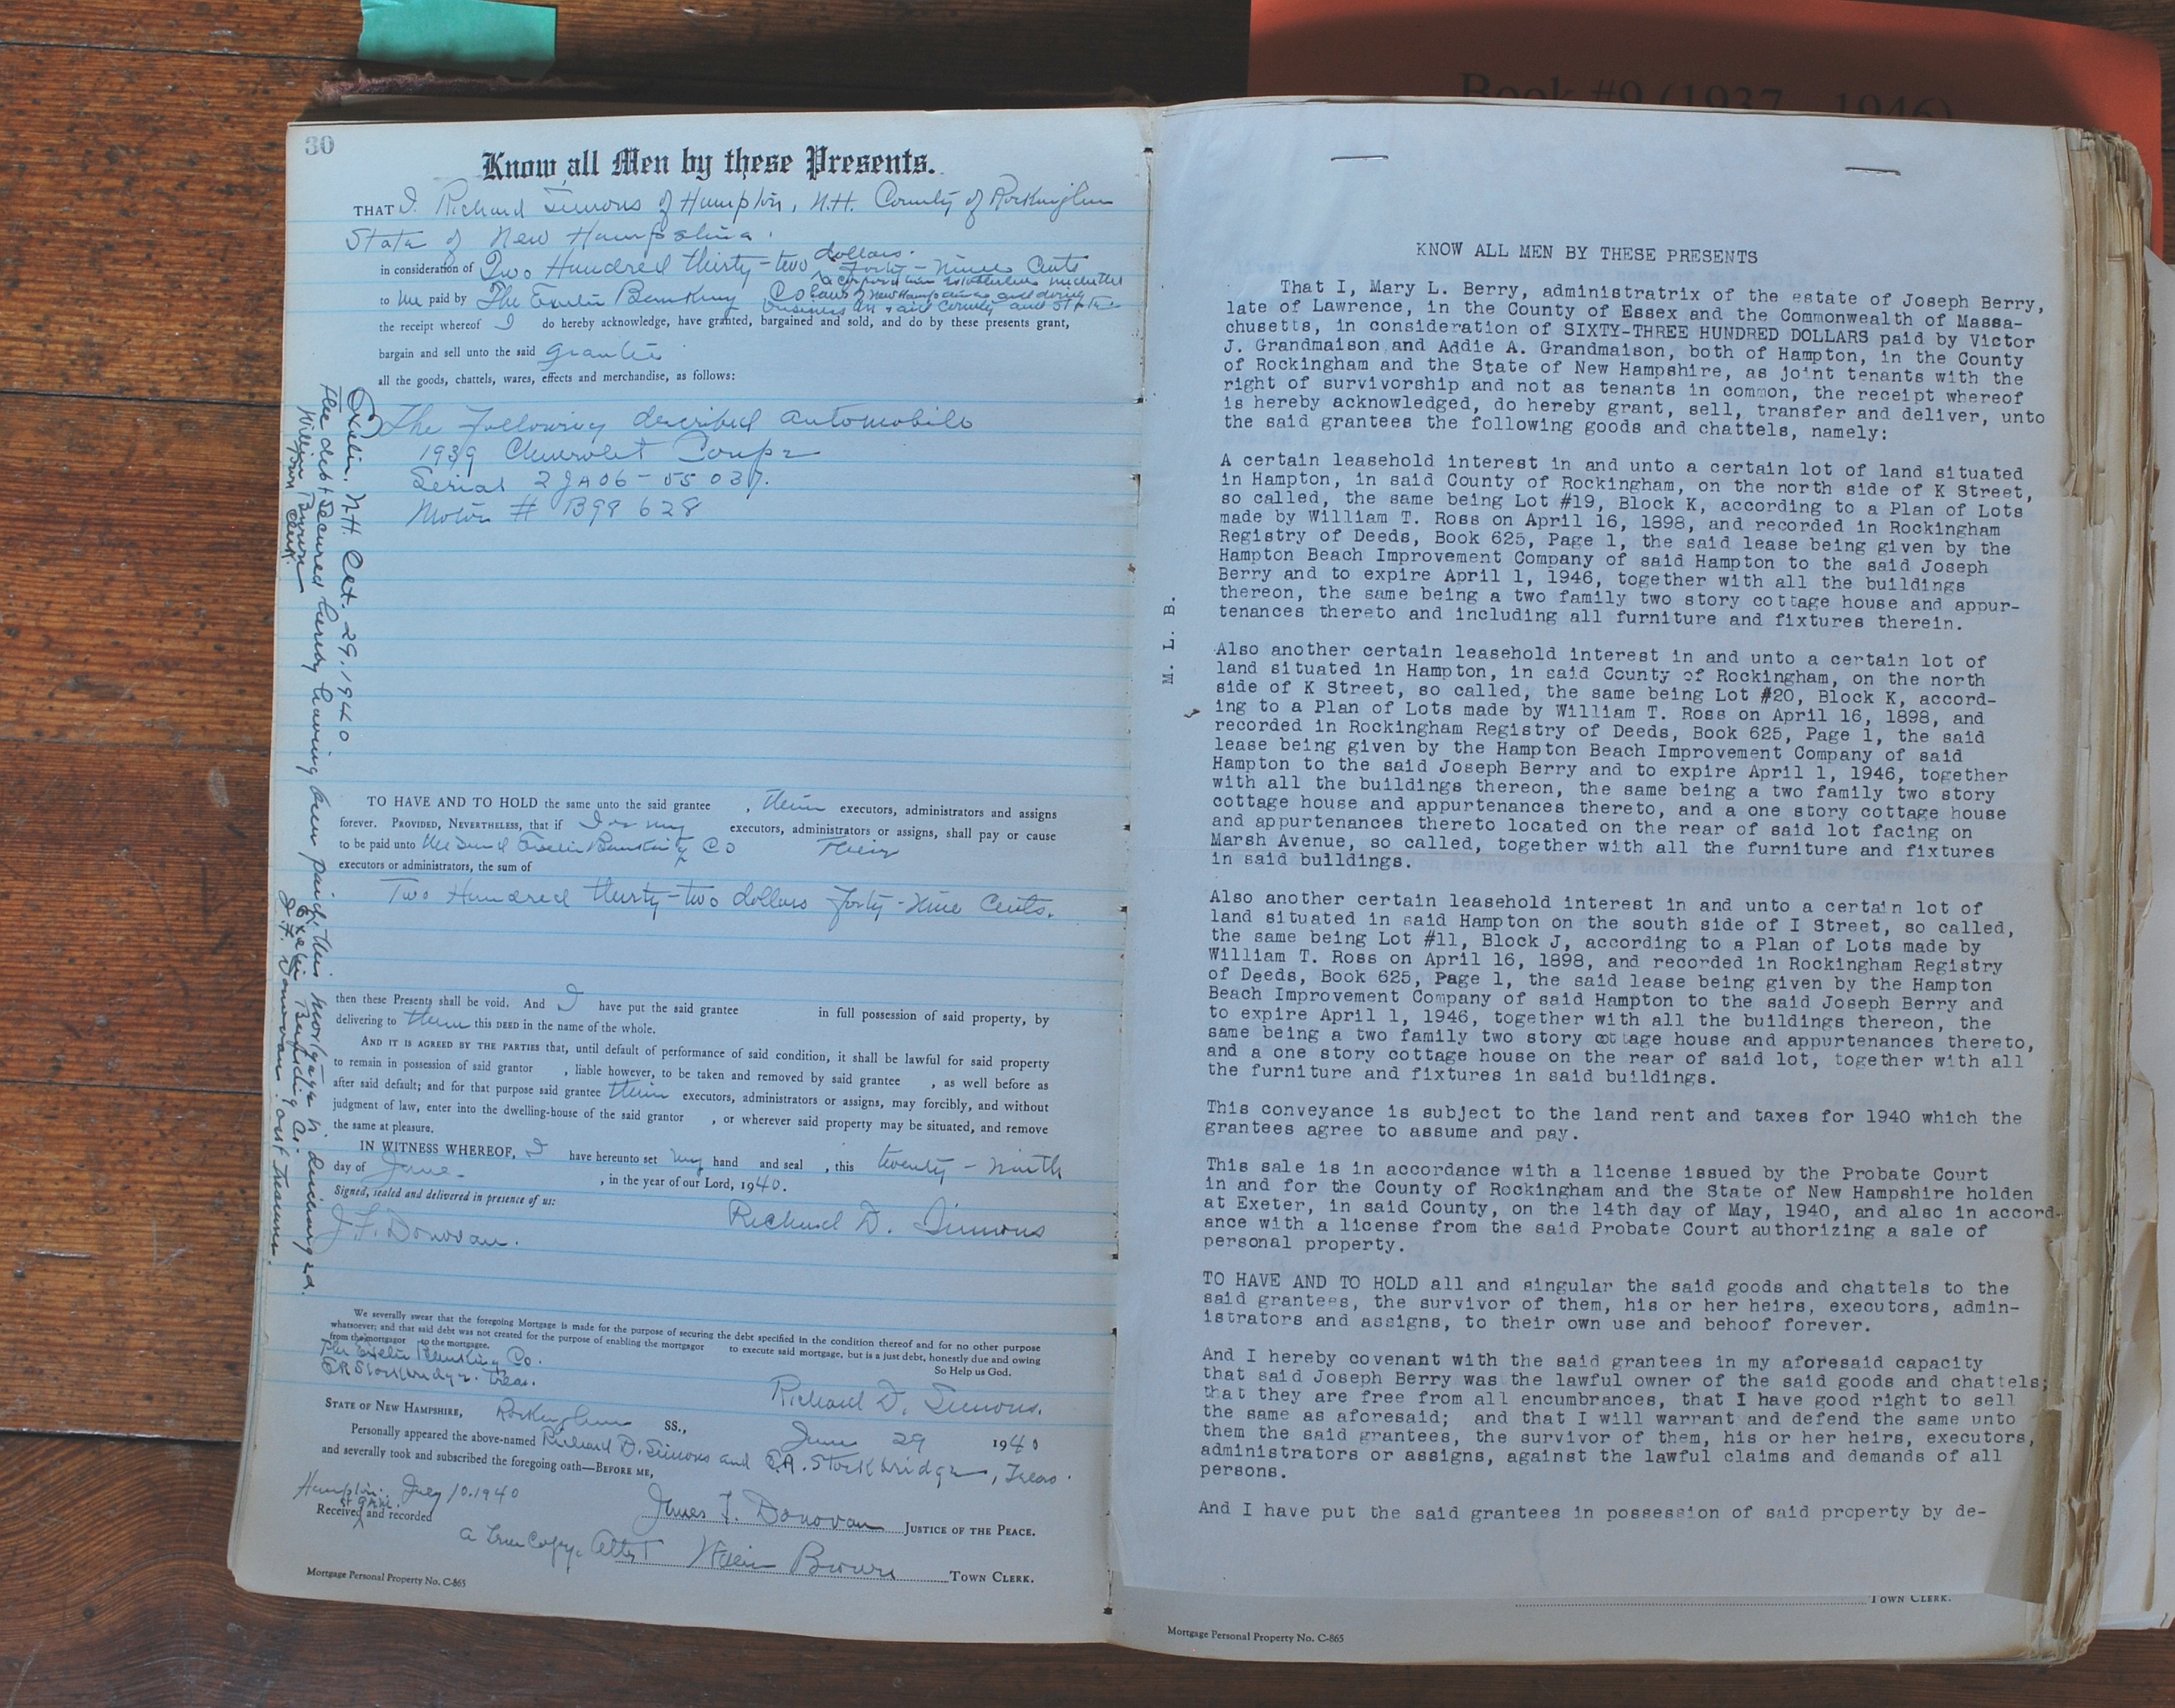 Book #9 (1937 - 1946)
30
Know all Men by these Presents.
THAT I, Richard Simons of Hampton, N.H. County of Rockingham
State of New Hampshire.
in consideration of Two Hundred thirty-two dollars. Forty-Nine Cents
to me paid by The Exeter Banking Co a corporation established under the
laws of New Hampshire and doing
business in said County and State
the receipt whereof I do hereby acknowledge, have granted, bargained and sold, and do by these presents grant,
bargain and sell unto the said grantee
all the goods, chattels, wares, effects and merchandise, as follows:
The following described automobile
1939 Chevrolet Coupe
Serial 2JA06-55037.
Motor # B98 628
TO HAVE AND TO HOLD the same unto the said grantee , their executors, administrators and assigns
forever. PROVIDED, NEVERTHELESS, that if I or my executors, administrators or assigns, shall pay or cause
to be paid unto the said Exeter Banking Co Their
executors or administrators, the sum of
Two Hundred thirty-two dollars forty-Nine Cents.
then these Presents shall be void. And I have put the said grantee in full possession of said property, by
delivering to them this DEED in the name of the whole.
AND IT IS AGREED BY THE PARTIES that, until default of performance of said condition, it shall be lawful for said property
to remain in possession of said grantor , liable however, to be taken and removed by said grantee , as well before as
after said default; and for that purpose said grantee their executors, administrators or assigns, may forcibly, and without
judgment of law, enter into the dwelling-house of the said grantor , or wherever said property may be situated, and remove
the same at pleasure.
IN WITNESS WHEREOF, I have hereunto set my hand and seal , this twenty-ninth
day of June , in the year of our Lord, 1940.
Signed, sealed and delivered in presence of us:
Richard D. Simons
J. F. Donovan.
We severally swear that the foregoing Mortgage is made for the purpose of securing the debt specified in the condition thereof and for no other purpose
whatsoever; and that said debt was not created for the purpose of enabling the mortgagor to execute said mortgage, but is a just debt, honestly due and owing
from the mortgagor to the mortgagee. So Help us God.
The Exeter Banking Co.
E.R. Stockbridge. Treas.
Richard D. Simons.
STATE OF NEW HAMPSHIRE, Rockingham SS., June 29 1940
Personally appeared the above-named Richard D. Simons and E.R. Stockbridge, Treas.
and severally took and subscribed the foregoing oath—BEFORE ME,
Hampton: July 10. 1940
Received and recorded
James F. Donovan JUSTICE OF THE PEACE.
A true Copy, Attest William Brown TOWN CLERK.
Mortgage Personal Property No. C-865
Exeter, N.H. Oct. 29, 1940
The debt secured hereby having been paid, this mortgage is discharged.
Exeter Banking Co.
J. F. Donovan. asst treasurer.
William Brown
Town Clerk.
KNOW ALL MEN BY THESE PRESENTS
That I, Mary L. Berry, administratrix of the estate of Joseph Berry,
late of Lawrence, in the County of Essex and the Commonwealth of Massa-
chusetts, in consideration of SIXTY-THREE HUNDRED DOLLARS paid by Victor
J. Grandmaison and Addie A. Grandmaison, both of Hampton, in the County
of Rockingham and the State of New Hampshire, as joint tenants with the
right of survivorship and not as tenants in common, the receipt whereof
is hereby acknowledged, do hereby grant, sell, transfer and deliver, unto
the said grantees the following goods and chattels, namely:
A certain leasehold interest in and unto a certain lot of land situated
in Hampton, in said County of Rockingham, on the north side of K Street,
so called, the same being Lot #19, Block K, according to a Plan of Lots
made by William T. Ross on April 16, 1898, and recorded in Rockingham
Registry of Deeds, Book 625, Page 1, the said lease being given by the
Hampton Beach Improvement Company of said Hampton to the said Joseph
Berry and to expire April 1, 1946, together with all the buildings
thereon, the same being a two family two story cottage house and appur-
tenances thereto and including all furniture and fixtures therein.
M. L. B.
Also another certain leasehold interest in and unto a certain lot of
land situated in Hampton, in said County of Rockingham, on the north
side of K Street, so called, the same being Lot #20, Block K, accord-
ing to a Plan of Lots made by William T. Ross on April 16, 1898, and
recorded in Rockingham Registry of Deeds, Book 625, Page 1, the said
lease being given by the Hampton Beach Improvement Company of said
Hampton to the said Joseph Berry and to expire April 1, 1946, together
with all the buildings thereon, the same being a two family two story
cottage house and appurtenances thereto, and a one story cottage house
and appurtenances thereto located on the rear of said lot facing on
Marsh Avenue, so called, together with all the furniture and fixtures
in said buildings.
Also another certain leasehold interest in and unto a certain lot of
land situated in said Hampton on the south side of I Street, so called,
the same being Lot #11, Block J, according to a Plan of Lots made by
William T. Ross on April 16, 1898, and recorded in Rockingham Registry
of Deeds, Book 625, Page 1, the said lease being given by the Hampton
Beach Improvement Company of said Hampton to the said Joseph Berry and
to expire April 1, 1946, together with all the buildings thereon, the
same being a two family two story cottage house and appurtenances thereto,
and a one story cottage house on the rear of said lot, together with all
the furniture and fixtures in said buildings.
This conveyance is subject to the land rent and taxes for 1940 which the
grantees agree to assume and pay.
This sale is in accordance with a license issued by the Probate Court
in and for the County of Rockingham and the State of New Hampshire holden
at Exeter, in said County, on the 14th day of May, 1940, and also in accord-
ance with a license from the said Probate Court authorizing a sale of
personal property.
TO HAVE AND TO HOLD all and singular the said goods and chattels to the
said grantees, the survivor of them, his or her heirs, executors, admin-
istrators and assigns, to their own use and behoof forever.
And I hereby covenant with the said grantees in my aforesaid capacity
that said Joseph Berry was the lawful owner of the said goods and chattels;
that they are free from all encumbrances, that I have good right to sell
the same as aforesaid; and that I will warrant and defend the same unto
them the said grantees, the survivor of them, his or her heirs, executors,
administrators or assigns, against the lawful claims and demands of all
persons.
And I have put the said grantees in possession of said property by de-
TOWN CLERK.
Mortgage Personal Property No. C-865